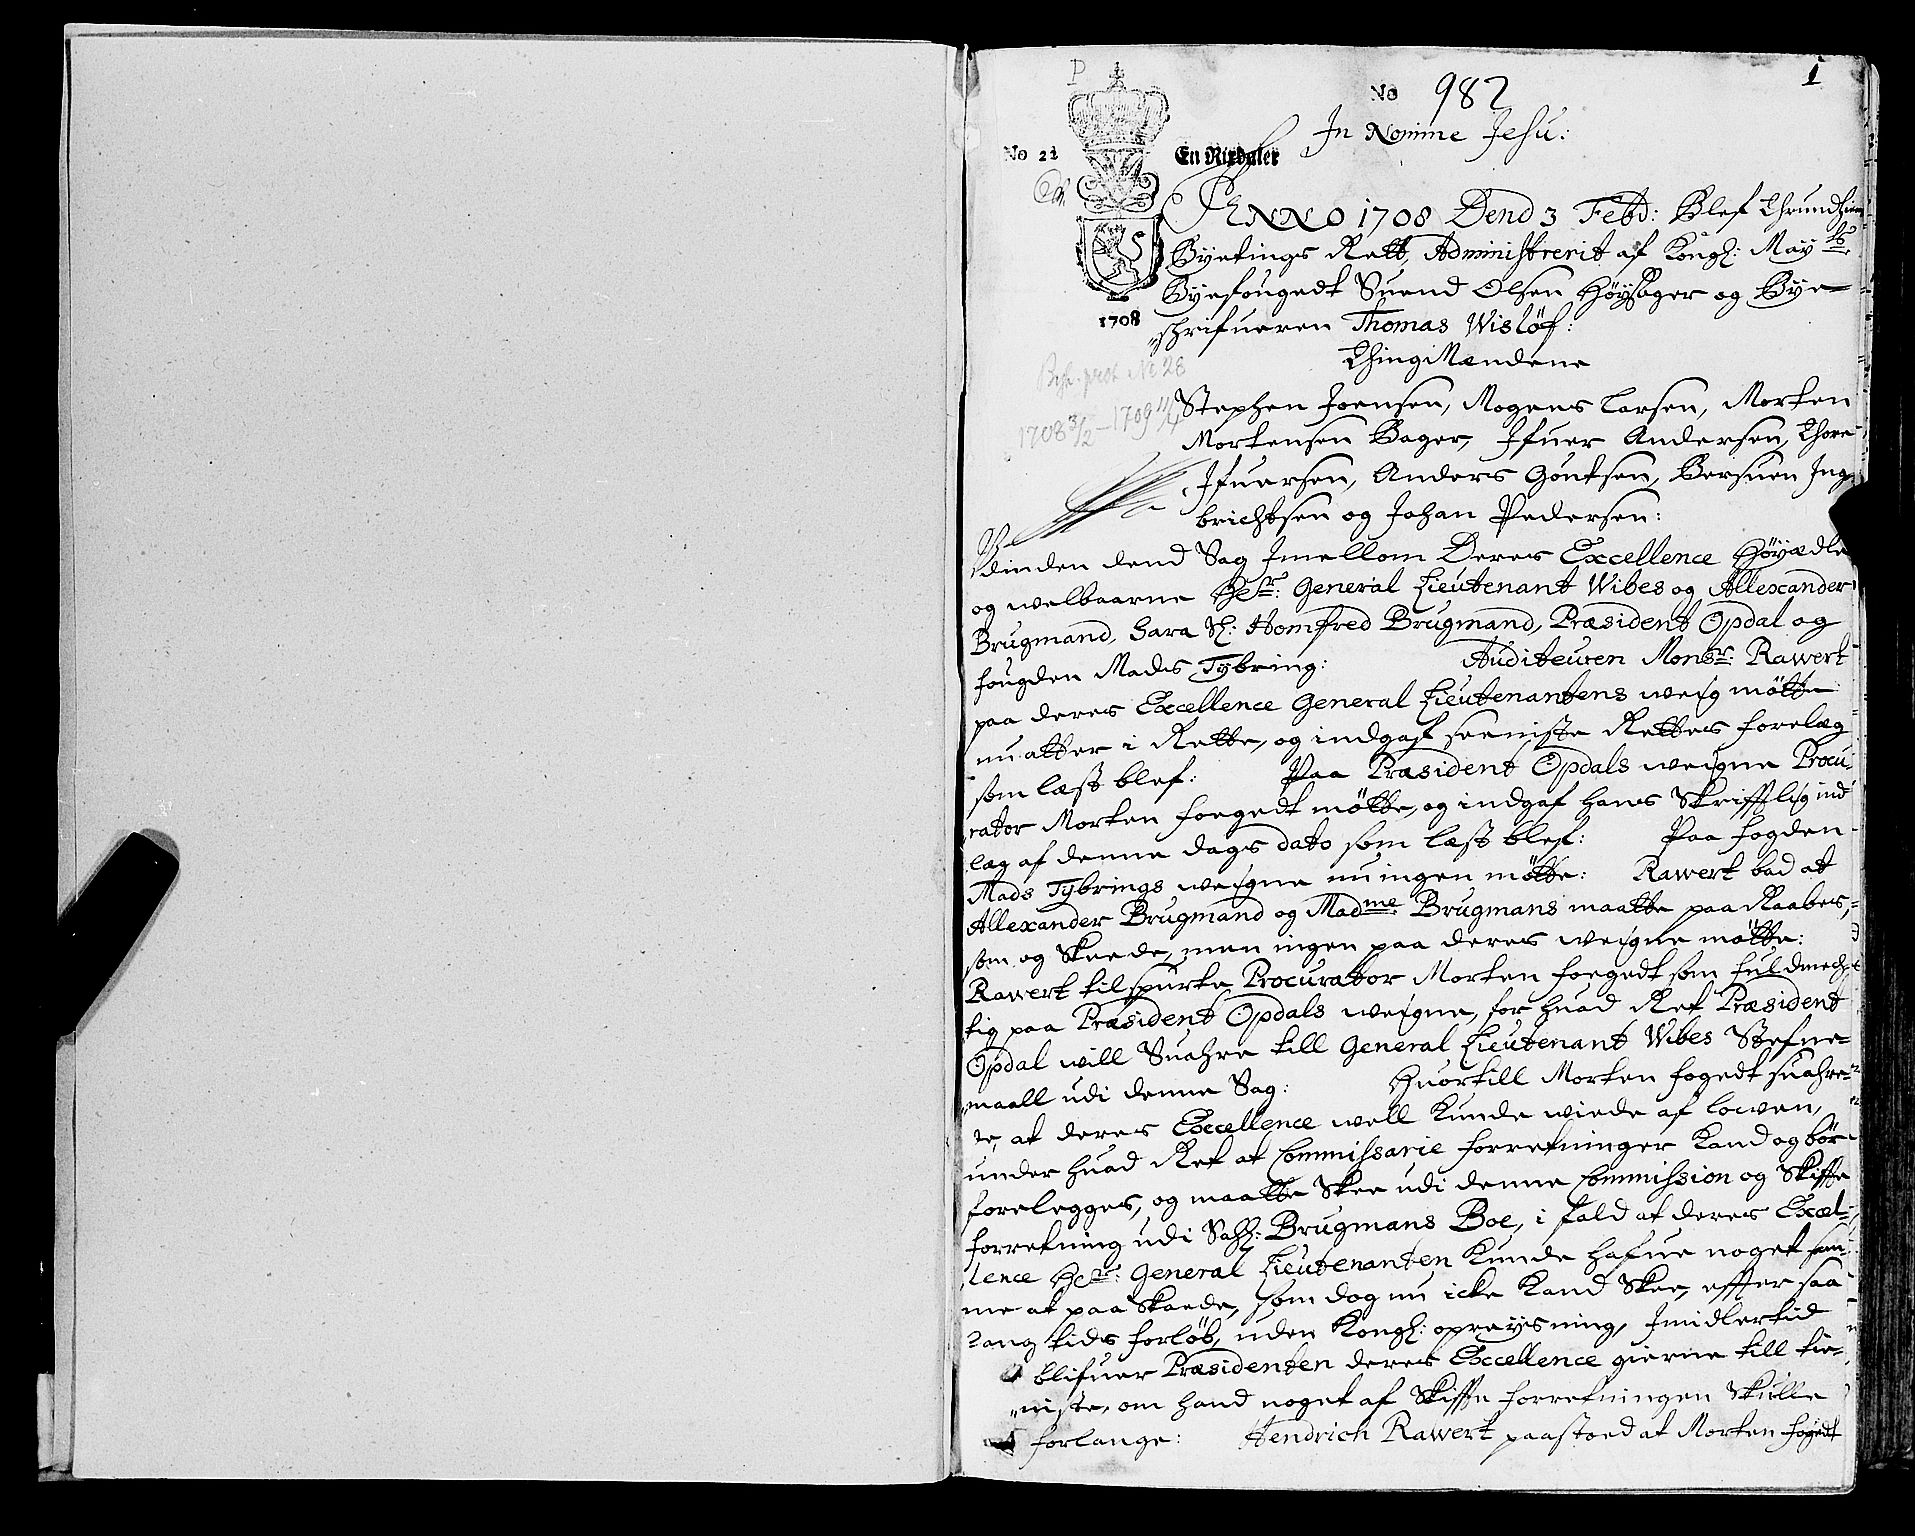 1
No 982
In Nomine Jesu:
No 21
En Rixdaler
ANNO 1708 Dend 3 Febr: Blef Thrundhiem
Byetings Rett, Administrerit af Kongl: May ts
Byefougedt Suend Olsen Høysager og Bye-
schrifueren Thomas Wisløf:
1708
ThingMændene
Byh. prot. No 28
1708 3/2 - 1709 11/4
Stephen Joensen, Mogens Larsen, Morten
Mortensen Bager, Ifuer Andersen, Thore
Ifuersen, Anders Gøutsen, Bersuen Ing-
brichtsen og Johan Pedersen:
Udinden dend Sag Imellom Deres Excellence Høyædle
og welbaarne Hr: General Lieutenant Wibes og Allexander
Brugmand, Sara Sl: Homfred Brugmand, Præsident Opdal og
fougden Mads Tybring: Auditeuren Monsr: Rawert
paa deres Excellence General Lieutenantens weig møtte
nu atter i Rette, og indgaf seeniste Rettes forelæg
som læst blef: Paa Præsident Opdals weigne Procu-
rator Morten foegedt møtte, og indgaf hans Skrifftlig ind
læg af denne dags dato som læst blef: Paa fogden
Mads Tybrings weigne nu ingen møtte: Rawert bad at
Allexander Brugmand og Madme Brugmans maatte paa Raabes,
som og Skeede, men ingen paa deres weigne møtte:
Rawert tilspurte Procurator Morten foegedt som fuldmech-
tig paa Præsident Opdals weigne, for huad Ret Præsident
Opdal will Suahre till General Lieutenant Wibes Stefne-
maall udi denne Sag: Huortill Morten fogedt suahre-
te, at deres Excellence well kunde wiede af lowen,
under huad Ret at Commissarie forretninger kand og bør
forelegges, og maatte Skee udi denne Commission og Skiffte
forretning udi Sahl: Brugmans Boe, i fald at deres Excel-
lence Hr: General Lieutenanten kunde hafue noget sam-
me at paa Skaede, som dog nu icke kand Skee, effter saa
lang tids forløb, uden Kongl: opreysning, Imidlertid
blifuer Præsidenten deres Excellence gierne till tie-
niste, om hand noget af Skiffte forretningen Skulle
forlange: Hendrich Rawert paastoed at Morten fogedt